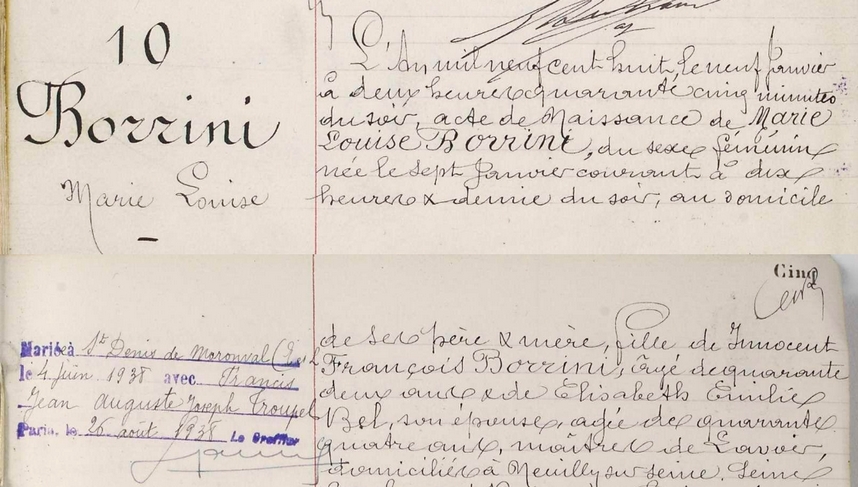 10
Borrini
Marie Louise
L'An mil neuf cent huit, le neuf Janvier
à deux heures quarante cinq minutes
du soir, acte de Naissance de Marie
Louise Borrini, du sexe féminin
née le sept Janvier courant à dix
heures & demie du soir, au domicile
Cinq
Mariée à St Denis de Moronval
le 4 juin 1938 avec Francis
Jean Auguste Joseph Troupel
Paris, le 26 août 1938 Le Greffier
de ses père & mère, fille de Innocent
François Borrini, âgé de quarante
deux ans & de Elisabeth Emilie
Bel, son épouse, agée de quarante
quatre ans, maîtres de Lavoir,
domiciliés à Neuilly sur Seine, Seine